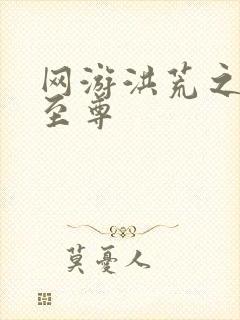 网游洪荒之
至尊
莫忧人